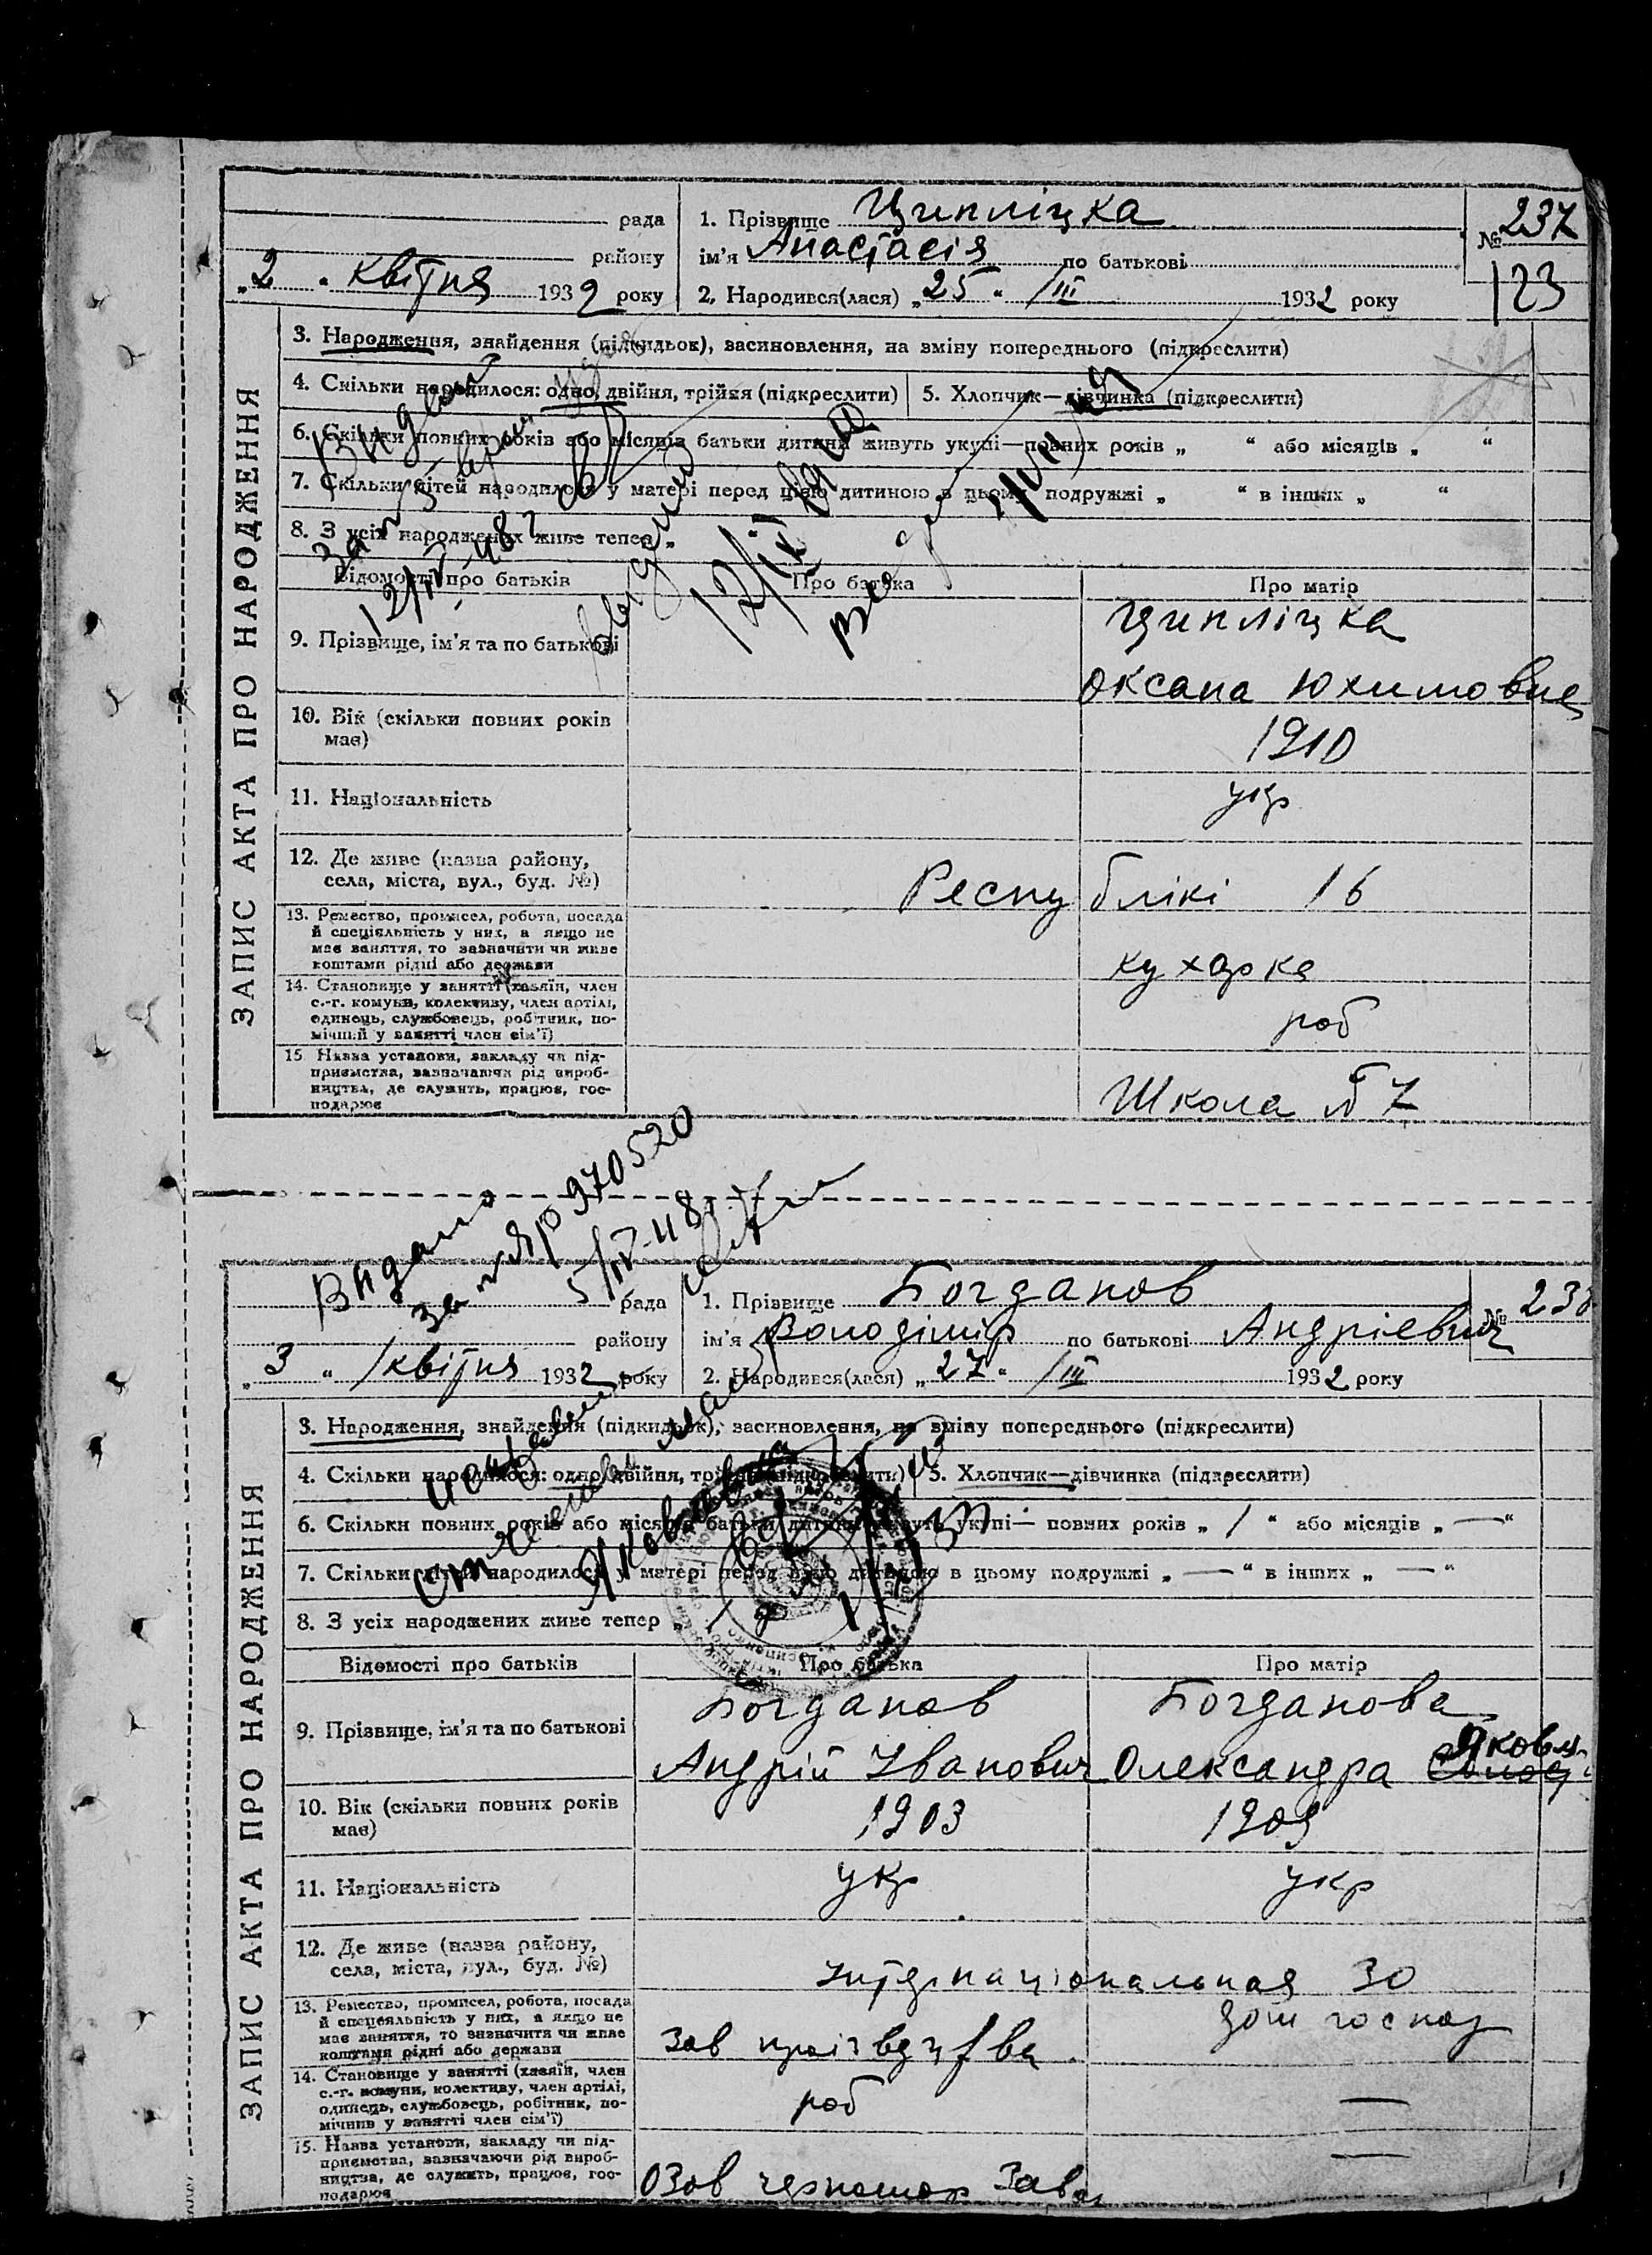 рада
району
„2“ квітня 1932 року
1. Прізвище Ципліцка
ім'я Анастасія по батькові
2. Народився(лася) „25“ /III 1932 року
№ 237
123
ЗАПИС АКТА ПРО НАРОДЖЕННЯ
3. Народження, знайдення (підкидьок), засиновлення, на зміну попереднього (підкреслити)
4. Скільки народилося: одно, двійня, трійня (підкреслити) 5. Хлопчик—дівчинка (підкреслити)
6. Скільки повних років або місяців батьки дитини живуть укупі—повних років „ “ або місяців „ “
7. Скільки дітей народилося у матері перед цією дитиною в цьому подружжі „ “ в інших „ “
8. З усіх народжених живе тепер „
12/IV-48
Відомості про батьків Про батька Про матір
9. Прізвище, ім'я та по батькові
Ципліцка
Оксана Юхимовна
10. Вік (скільки повних років має)
1910
11. Національність
укр
12. Де живе (назва району, села, міста, вул., буд. №)
Республікі 16
13. Ремество, промисел, робота, посада й спеціяльність у них, а якщо не має заняття, то зазначити чи живе коштами рідні або держави
кухарка
14. Становище у занятті (хазяїн, член с.-г. комуни, колективу, член артілі, одинець, службовець, робітник, помічний у занятті член сім'ї)
роб
15. Назва установи, закладу чи підприємства, зазначаючи рід виробництва, де служить, працює, господарює
Школа № 7
Видано
за № ЯР 970520
5/IV-48
рада
району
„3“ квітня 1932 року
1. Прізвище Богданов
ім'я Володімір по батькові Андрієвич
2. Народився(лася) „27“ /III 1932 року
№ 238
ЗАПИС АКТА ПРО НАРОДЖЕННЯ
3. Народження, знайдення (підкидьок), засиновлення, на зміну попереднього (підкреслити)
4. Скільки народилося: одно, двійня, трійня (підкреслити) 5. Хлопчик—дівчинка (підкреслити)
6. Скільки повних років або місяців батьки дитини живуть укупі— повних років „ 1 “ або місяців „ — “
7. Скільки дітей народилося у матері перед цією дитиною в цьому подружжі „ — “ в інших „ — “
8. З усіх народжених живе тепер „
Відомості про батьків Про батька Про матір
9. Прізвище, ім'я та по батькові
Богданов Богданова
Андрій Іванович Олександра Яковл
10. Вік (скільки повних років має)
1903 1909
11. Національність
укр укр
12. Де живе (назва району, села, міста, вул., буд. №)
Інтернаціональная 30
13. Ремество, промисел, робота, посада й спеціяльність у них, а якщо не має заняття, то зазначити чи живе коштами рідні або держави
Зав дом господ
14. Становище у занятті (хазяїн, член с.-г. комуни, колективу, член артілі, одинець, службовець, робітник, помічник у занятті член сім'ї)
роб —
15. Назва установи, закладу чи підприємства, зазначаючи рід виробництва, де служить, працює, господарює
—